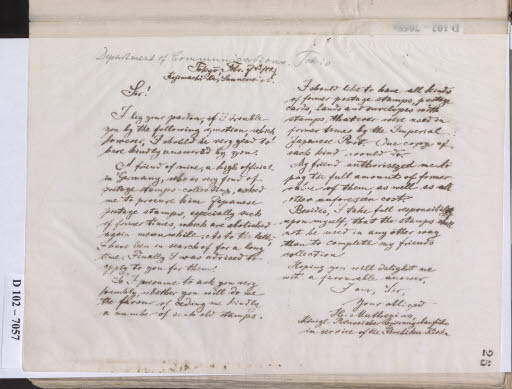 D 102-7057
Department of Communications. Tokio
Tokyo
Sir!
I beg your pardon, if I trouble
you by the following question, which
however, I should be very glad to
have kindly answered by you:
A friend of mine, a high official
in Germany, who is very fond of
postage stamps collecting, asked
me to procure him Japanese
postage stamps, especially such
of former times, which are abolished
again meanwhile; such as the latter
I have been in search of for a long
time. Finally I was advised to
apply to you for them.
So I presume to ask you very
humbly whether you will do me
the favour of sending me kindly
a number of such old stamps.
I should like to have all kinds
of former postage stamps, postage
cards, bands and envelopes with
stamps, that ever were used in
former times by the Imperial
Japanese Post. One copy of
each kind
My friend authorized me to
pay the full amount of former
value of them, as well as all
other unforeseen cost.
Besides, I take full responsibility
upon myself, that the stamps
not be used in any other way
than to complete my friend's
collection.
Hoping you will delight me
with a favourable answer,
I am, Sir,
Your
H. Muthesius,
in service of the
25
D 102-7057